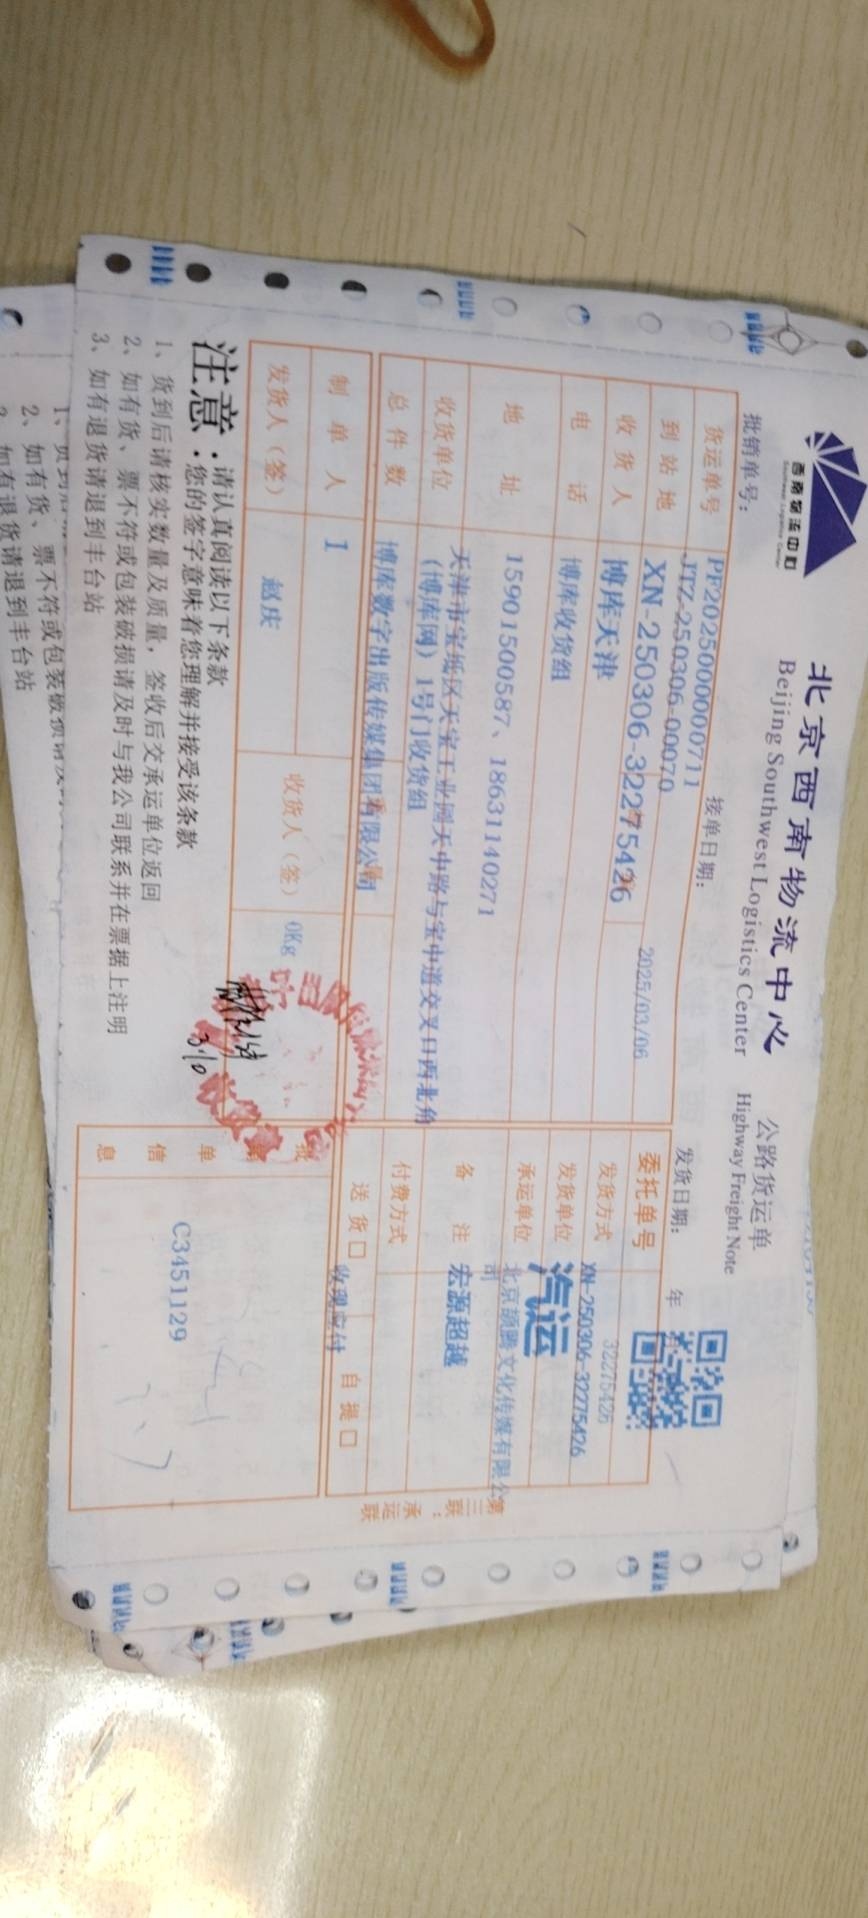 西南物流中心
Southwest Logistics Center
北京西南物流中心
Beijing Southwest Logistics Center
公路货运单
Highway Freight Note
批销单号：
PF2025000000711
接单日期：
发货日期：
年
货运单号
JTZ-250306-00070
2025/03/06
委托单号
32275426
到站地
XN-250306-32275426
发货方式
XN-250306-32275426
收货人
博库天津
发货单位
汽运
电话
博库收货组
承运单位
北京颉腾文化传媒有限公司
地址
15901500587、18631140271
备注
宏源超越
天津市宝坻区天宝工业园天中路与宝中道交叉口西北角
(博库网) 1号门收货组
收货单位
博库数字出版传媒集团有限公司
付费方式
总件数
1
0Kg
送货□
收现应付
自提□
制单人
赵庆
发货人（签）
收货人（签）
3/10
单
信
息
C3451129
第三联：承运联
注意：
请认真阅读以下条款
您的签字意味着您理解并接受该条款
1、货到后请核实数量及质量，签收后交承运单位返回
2、如有货、票不符或包装破损请及时与我公司联系并在票据上注明
3、如有退货请退到丰台站
2、如有货、票不符或包装破损请
如有退货请退到丰台站